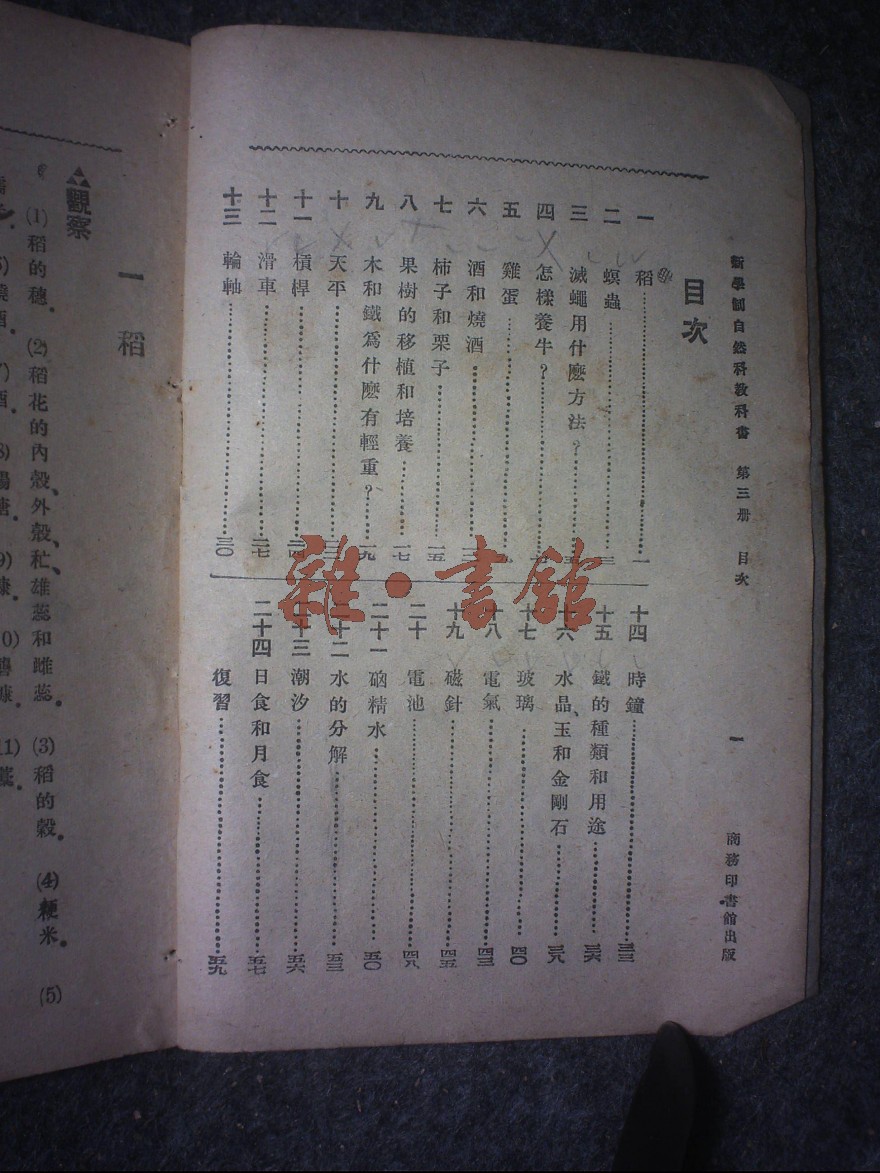 新學制自然科教科書 第三册 目次 一 商務印書館出版
目次
一 稻 一
二 螟蟲
三 滅蠅用什麽方法?
四 怎樣養牛?
五 雞蛋
六 酒和燒酒
七 柿子和栗子 一五
八 果樹的移植和培養 一七
九 木和鐵爲什麽有輕重? 一九
十 天平
十一 槓桿 二四
十二 滑車 二七
十三 輪軸 三〇
十四 時鐘 三三
十五 鐵的種類和用途 三六
十六 水晶、玉和金剛石 三八
十七 玻璃 四〇
十八 電氣 四三
十九 磁針 四五
二十 電池 四八
二十一 硇精水 五〇
二十二 水的分解 五三
二十三 潮汐 五六
二十四 日食和月食 五七
復習 五九
雜·書館
一 稻
觀察
(1)稻的穗。(2)稻花的內殼、外殼、芒、雄蕊和雌蕊。(3)稻的穀。(4)粳米。(5)